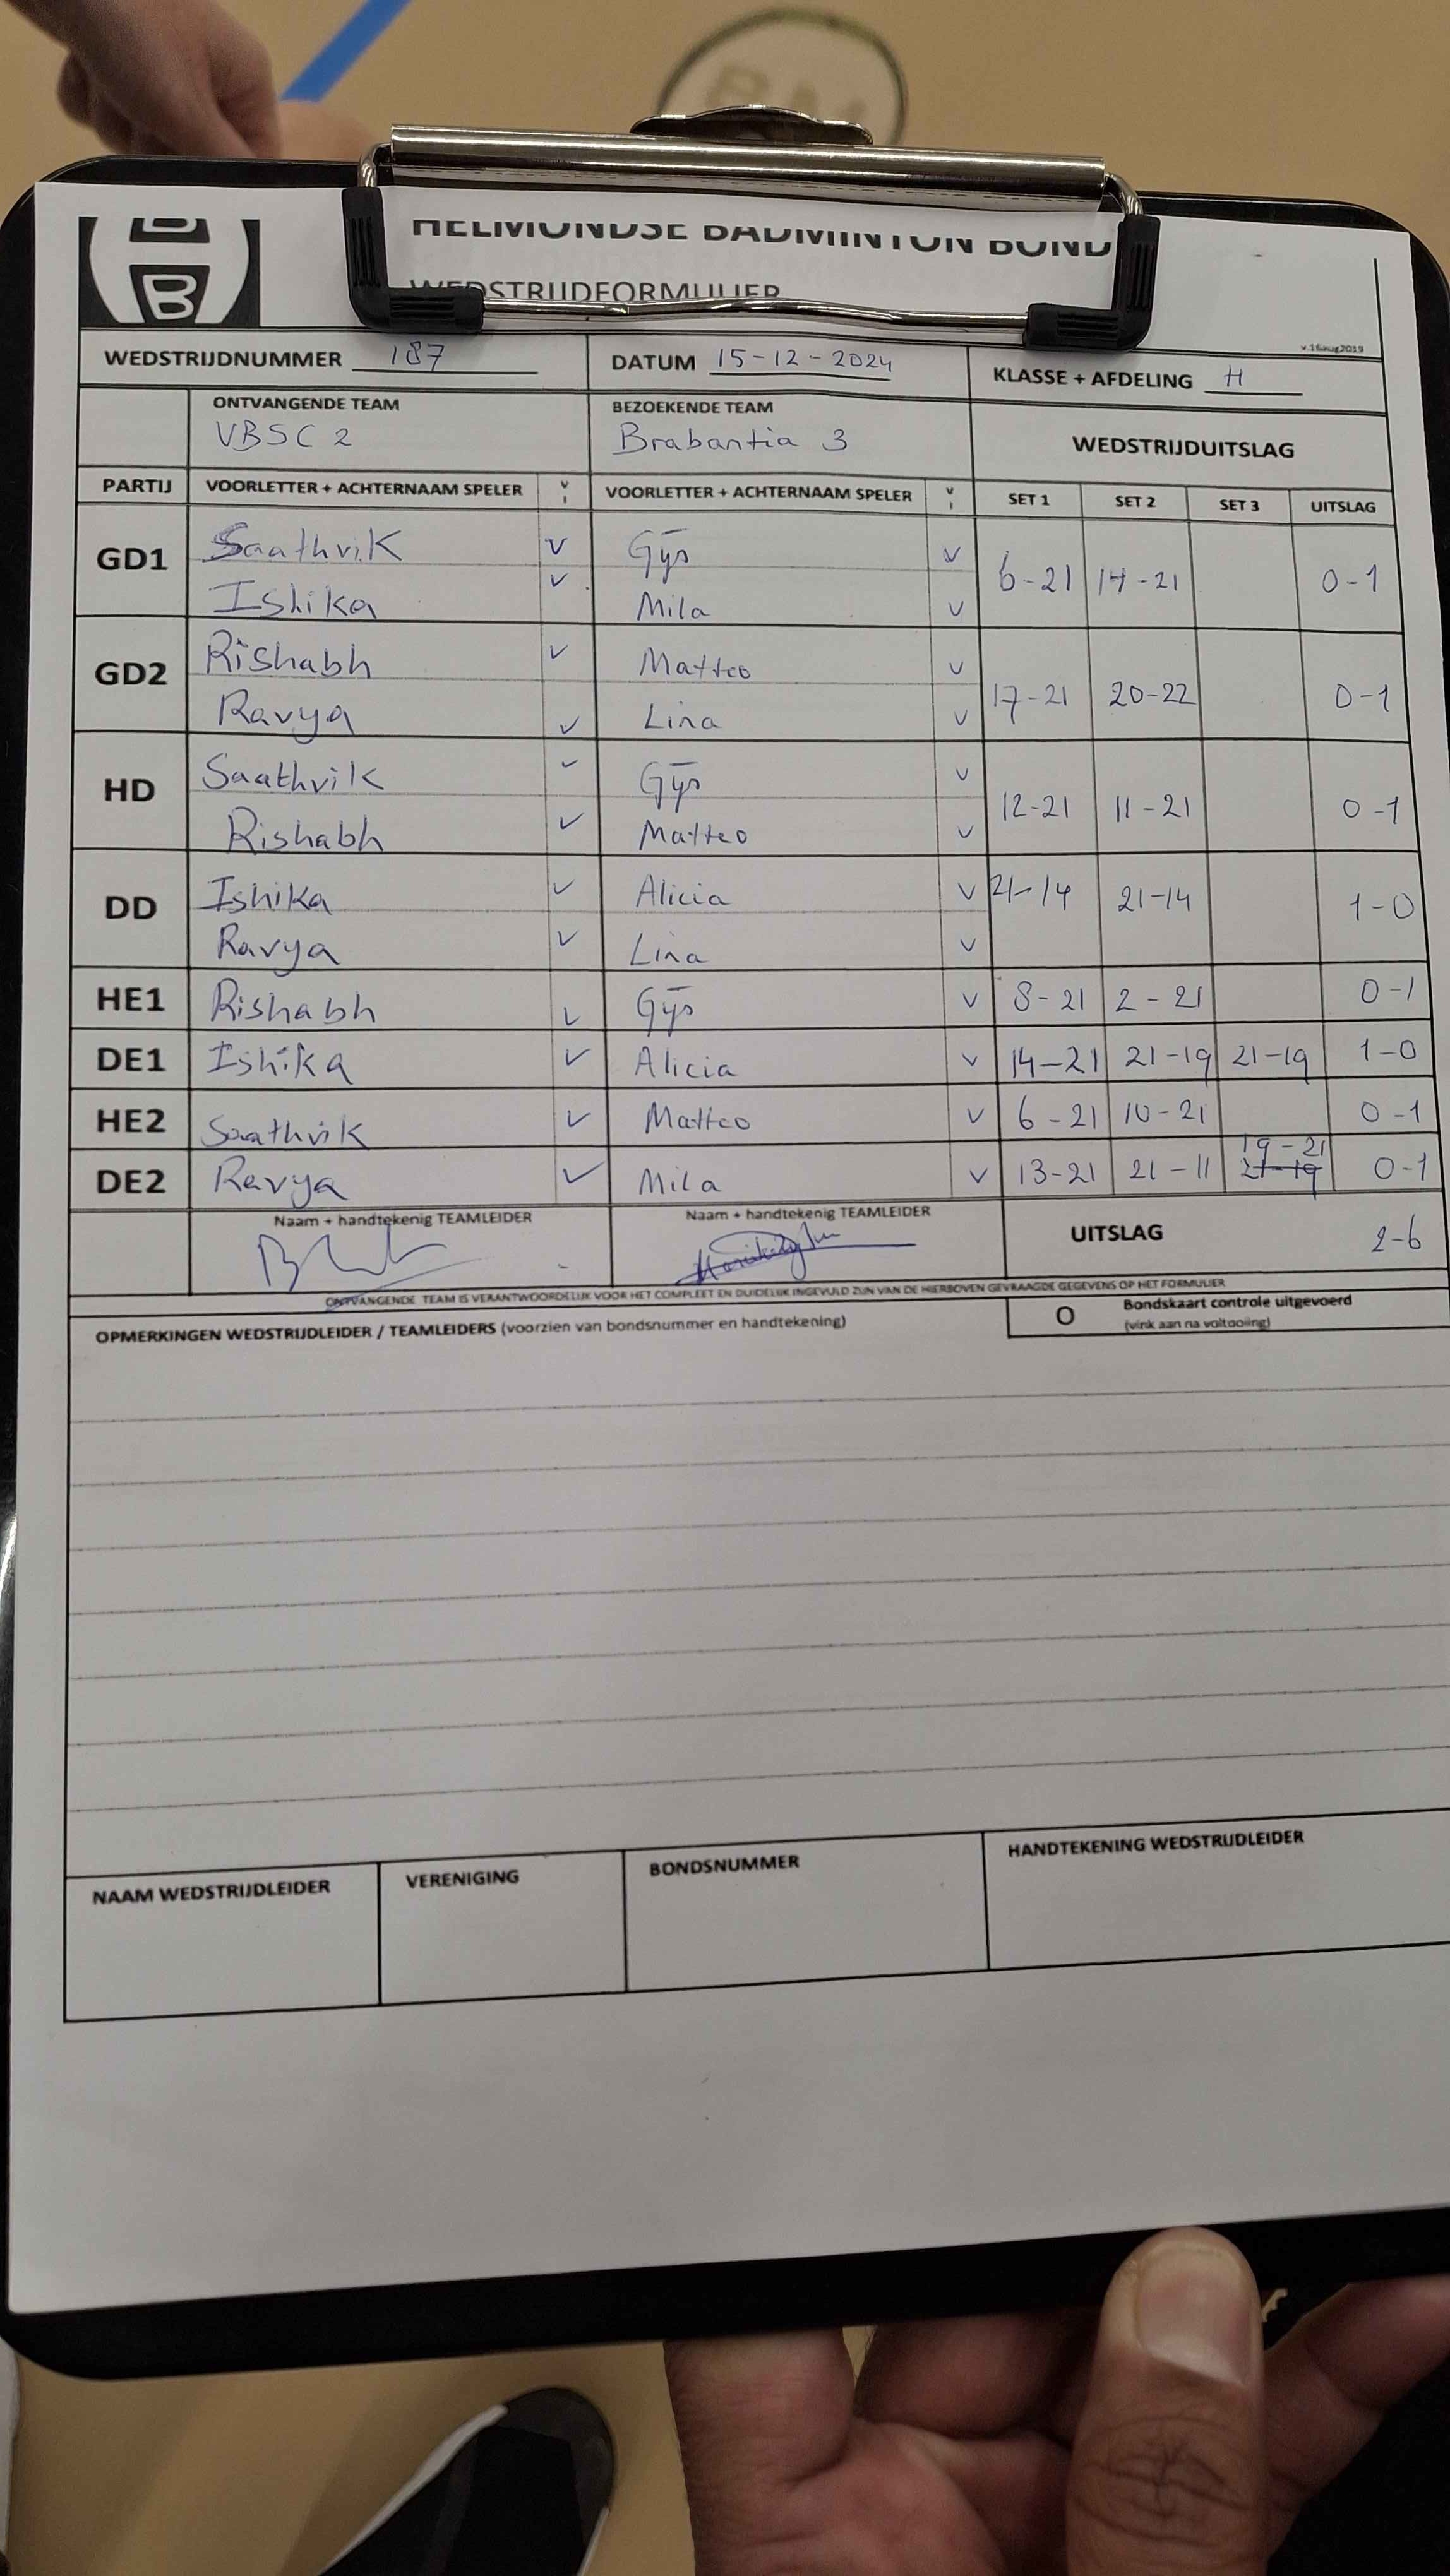 HELMONDSE BADMINTON BOND
WEDSTRIJDFORMULIER
B
v.16aug2019
WEDSTRIJDNUMMER 187 DATUM 15-12-2024 KLASSE + AFDELING H
ONTVANGENDE TEAM BEZOEKENDE TEAM
VBSC 2 Brabantia 3 WEDSTRIJDUITSLAG
PARTIJ VOORLETTER + ACHTERNAAM SPELER V I VOORLETTER + ACHTERNAAM SPELER V I SET 1 SET 2 SET 3 UITSLAG
GD1 Saathvik v Gijs v 6-21 14-21 0-1
Ishika v Mila v
GD2 Rishabh v Matteo v 17-21 20-22 0-1
Ravya v Lina v
HD Saathvik v Gijs v 12-21 11-21 0-1
Rishabh v Matteo v
DD Ishika v Alicia v 21-14 21-14 1-0
Ravya v Lina v
HE1 Rishabh v Gijs v 8-21 2-21 0-1
DE1 Ishika v Alicia v 14-21 21-19 21-19 1-0
HE2 Saathvik v Matteo v 6-21 10-21 0-1
DE2 Ravya v Mila v 13-21 21-11 19-21 21-19 0-1
Naam + handtekenig TEAMLEIDER Naam + handtekenig TEAMLEIDER UITSLAG 2-6
ONTVANGENDE TEAM IS VERANTWOORDELIJK VOOR HET COMPLEET EN DUIDELIJK INGEVULD ZIJN VAN DE HIERBOVEN GEVRAAGDE GEGEVENS OP HET FORMULIER
OPMERKINGEN WEDSTRIJDLEIDER / TEAMLEIDERS (voorzien van bondsnummer en handtekening) O Bondskaart controle uitgevoerd
(vink aan na voltooiing)
NAAM WEDSTRIJDLEIDER VERENIGING BONDSNUMMER HANDTEKENING WEDSTRIJDLEIDER